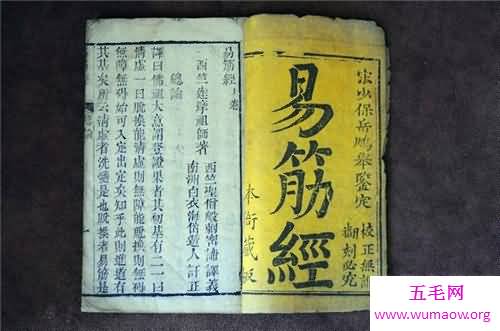 宋少保岳鵬舉鑒定
校正無訛
翻刻必究
易筋經
本衙藏板
易筋經上卷
西竺達摩祖師著
西竺聖僧般剌密諦譯義
南洲白衣海岱遊人訂正
總論
譯曰佛祖大意謂登證果者其初基有二一曰
清虛一曰脫換能清虛則無障能脫換則無碍
無障無碍始可入定出定矣知乎此則進道有
其基矣所云清虛者洗髓是也脫換者易筋是
總論
五毛网
www.wumaow.org